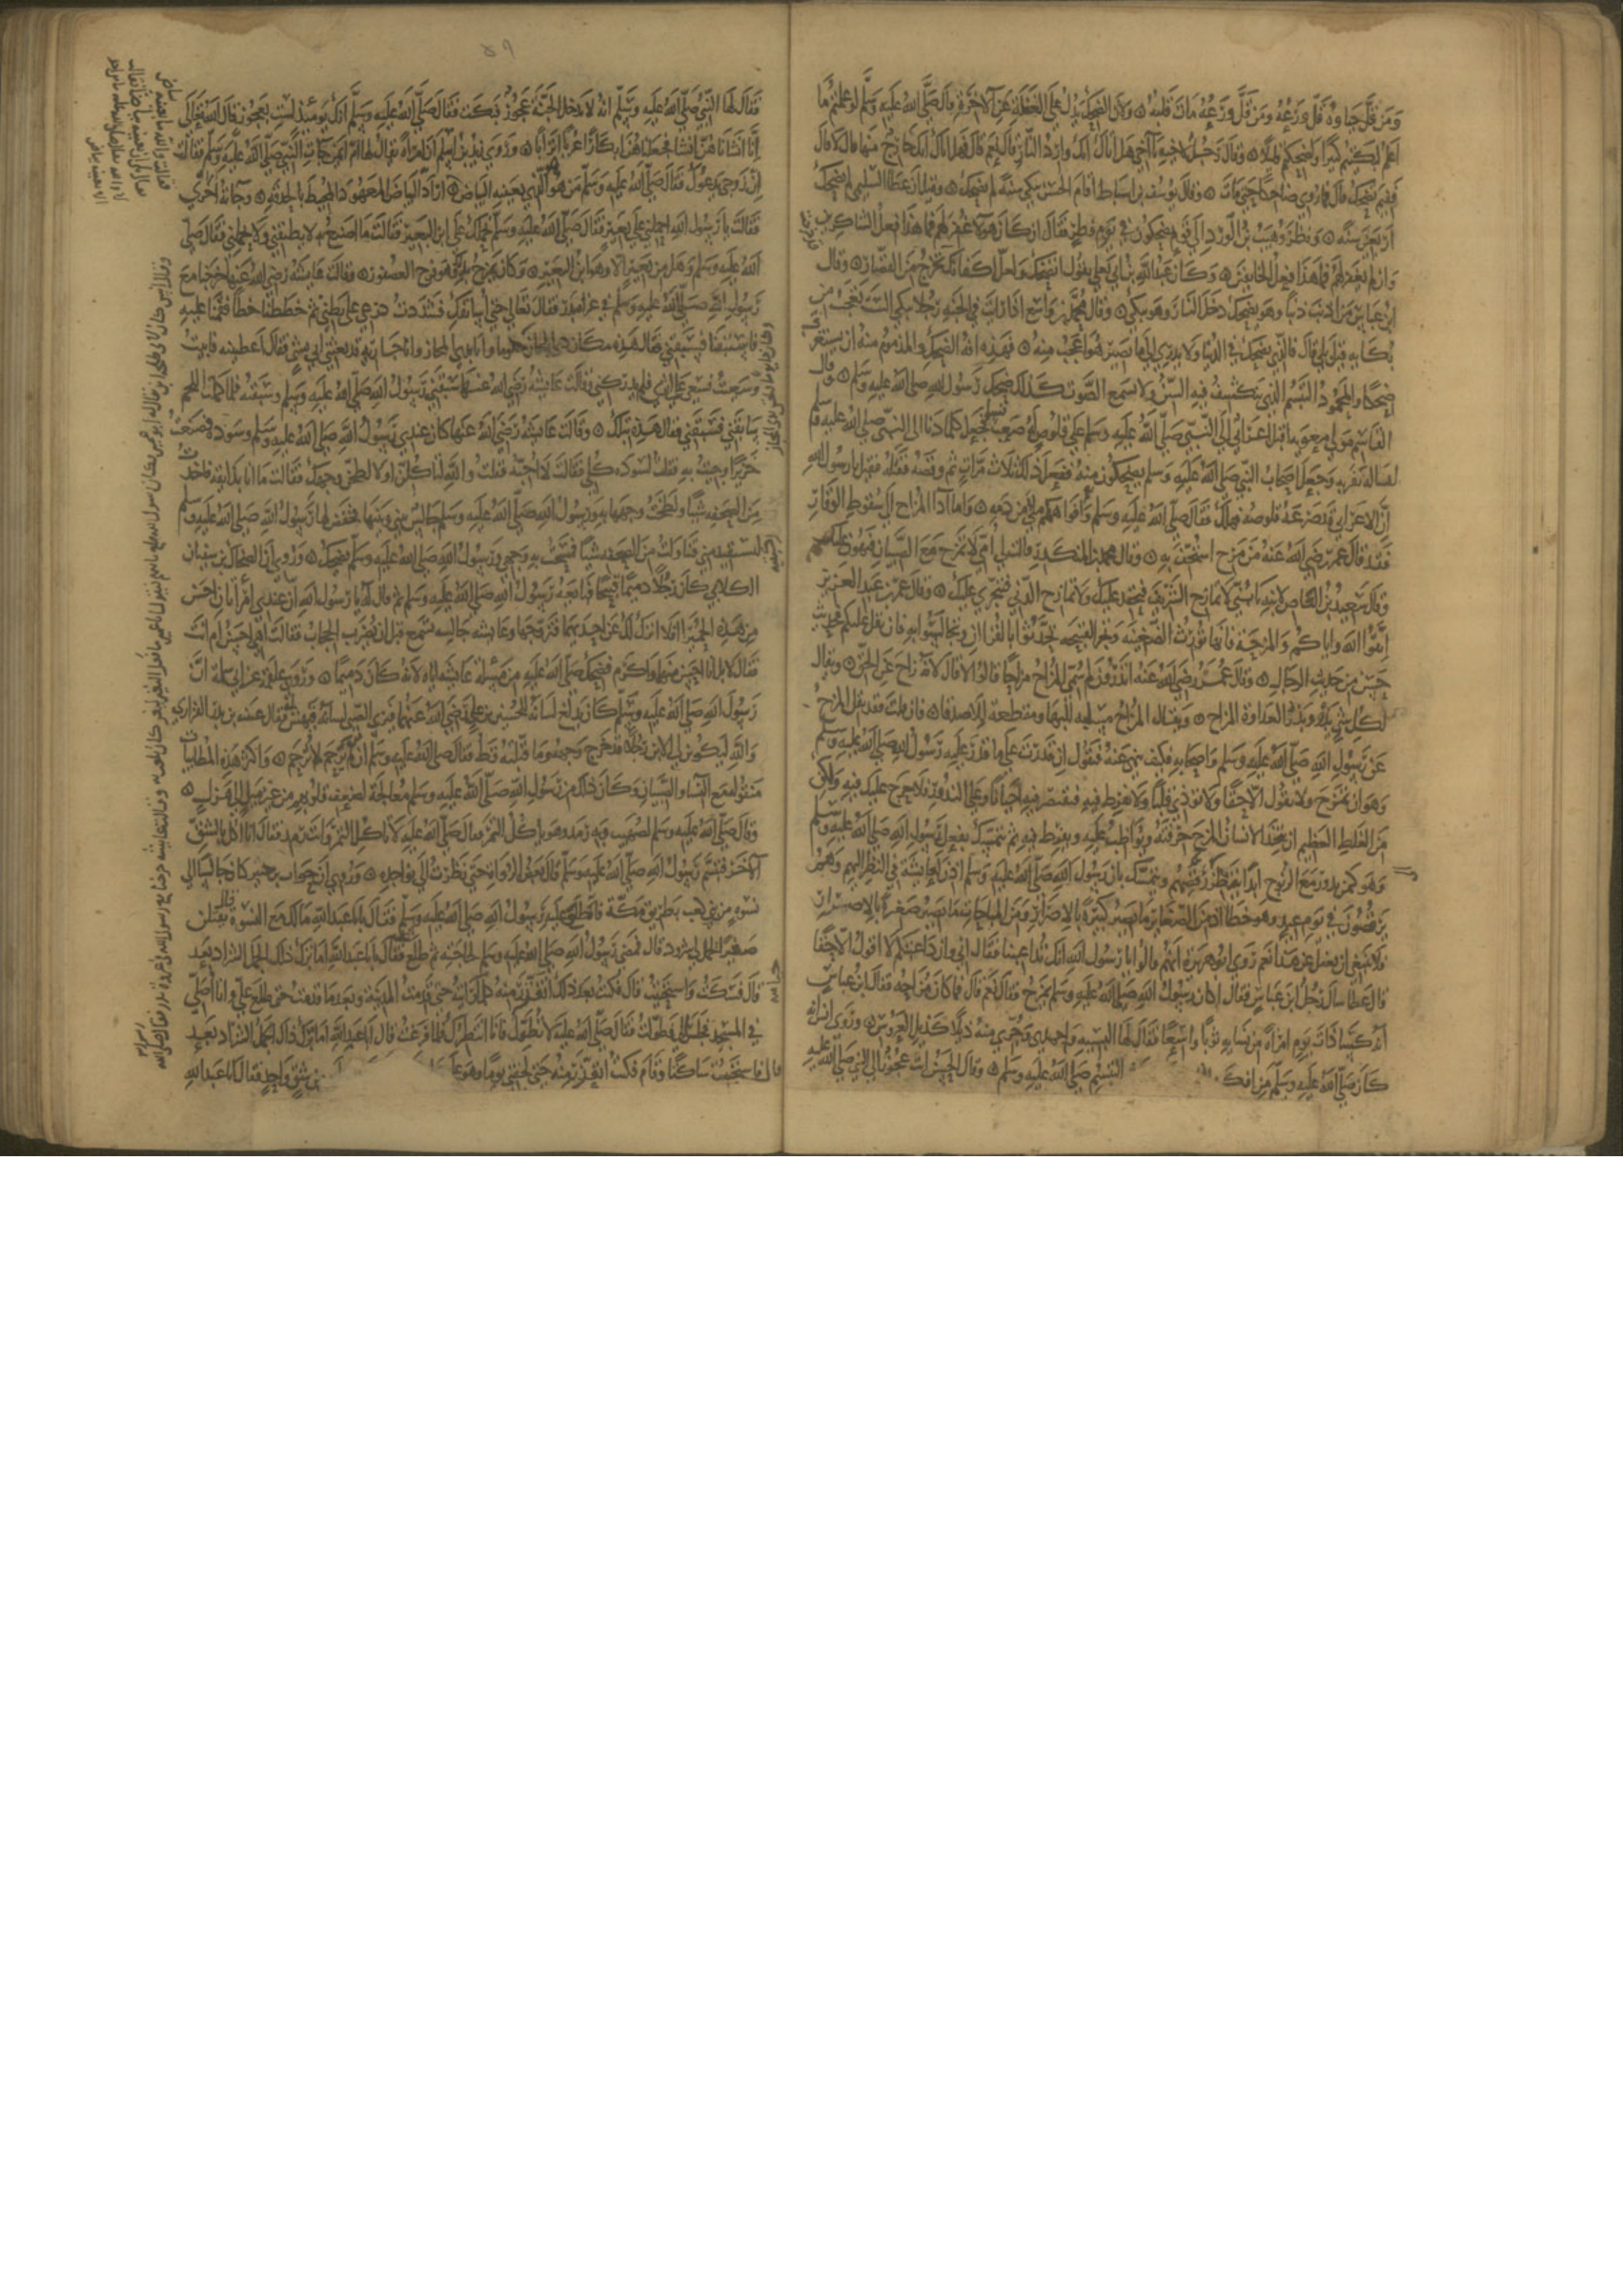 ومن قل حياؤه قل ورعه ومن قل ورعه مات قلبه ولان الضحك يدل على الغفلة عن الاخرة قال صلى الله عليه وسلم لو علمتم ما
اعلم لبكيتم كثيرا ولضحكتم قليلا وقال رجل لاخيه يا اخي هل اتاك انك وارد النار قال نعم قال فهل اتاك انك خارج منها قال لا قال
ففيم الضحك قال فما رؤي ضاحكا حتى مات وقال يوسف بن اسباط اقام الحسن سنة لم يضحك وقيل ان عطا السليمي لم يضحك
اربعين سنة ونظر وهيب بن الورد الى قوم يضحكون في يوم فطر فقال ان كان هؤلا غفر لهم فما هذا فعل الشاكرين
وان لم يغفر لهم فما هذا فعل الخايفين وكان عبد الله بن ابي يعلى يقول اتضحك ولعل اكفانك قد خرجت من القصار وقال
ابن عباس من اذنب ذنبا وهو يضحك دخل النار وهو يبكي وقال محمد بن واسع اذا رايت في الجنة رجلا يبكي الست تعجب من
بكايه قيل بلى قال فالذي يضحك في الدنيا ولا يدري الى ما يصير هو اعجب منه فهذه افة الضحك والمذموم منه ان يستغرق
ضحكا والمحمود التبسم الذي ينكشف فيه السن ولا يسمع الصوت كذلك ضحك رسول الله صلى الله عليه وسلم وقال
القاسم مولى معوية اقبل اعرابي الى النبي صلى الله عليه وسلم على قلوص له صعب فسلم فجعل كلما دنا الى النبي صلى الله عليه وسلم
ليساله نفر به وجعل اصحاب النبي صلى الله عليه وسلم يضحكون منه ففعل ذلك ثلاث مرات ثم وقصه فقتله فقيل يا رسول الله
ان الاعرابي قد صرعه قلوصه فهلك فقال صلى الله عليه وسلم وافواهكم ملاى من دمه واما اذا المزاح الى سقوط الوقار
فقد قال عمر رضي الله عنه من مزح استخف به وقال محمد بن المنكدر قالت لي امي لا تمازح الصبيان فتهون عليهم
وقال سعيد بن العاص لابنه يا بني لا تمازح الشريف فيحقد عليك ولا تمازح الدني فيجترئ عليك وقال عمر بن عبد العزيز
اتقوا الله واياكم والمزاحة فانها تورث الضغينة وتجر القبيحة تحدثوا بالقران وتجالسوا به فان ثقل عليكم فحديث
حسن من حديث الرجال وقال عمر رضي الله عنه اتدرون لم سمي المزاح مزاحا قالوا لا قال لانه زاح عن الحق ويقال
لكل شي بذر وبذر العداوة المزاح ويقال المزاح مسلبة للنهى ومقطعة للاصدقا فان قلت فقد نقل المزح
عن رسول الله صلى الله عليه وسلم واصحابه فكيف ينهى عنه فنقول ان قدرت على ما قدر عليه رسول الله صلى الله عليه وسلم
وهو ان تمزح ولا تقول الا حقا ولا تؤذي قلبا ولا تفرط فيه فتقتصر فيه احيانا وعلى الندور فلا حرج عليك فيه ولكن
من الغلط العظيم ان يتخذ الانسان المزح حرفة ويواظب عليه ويفرط فيه ثم يتمسك بفعل رسول الله صلى الله عليه وسلم
وهو كمن يدور مع الزنوج ابدا ينظر رقصهم ويتمسك بان رسول الله صلى الله عليه وسلم اذن لعايشة في النظر اليهم وهم
يرقصون في يوم عيد وهو خطا اذ من الصغاير ما يصير كبيرة بالاصرار ومن المباحات ما يصير صغيرة بالاصرار
فلا ينبغي ان يغفل عن هذا نعم روى ابو هريرة انهم قالوا يا رسول الله انك تداعبنا فقال اني وان داعبتكم لا اقول الا حقا
قال عطا سال رجل ابن عباس فقال اكان رسول الله صلى الله عليه وسلم يمزح فقال نعم قال فما كان مزاحه فقال ابن عباس
انه كسا ذات يوم امراة من نسايه ثوبا واسعا فقال لها البسيه واحمدي وجري منه ذيلا كذيل العروس وروى انس انه
كان صلى الله عليه وسلم من افكه التبسم صلى الله عليه وسلم وقال الحسن اتت عجوز الى النبي صلى الله عليه
٥٩
فقال لها النبي صلى الله عليه وسلم انه لا يدخل الجنة عجوز فبكت فقال صلى الله عليه وسلم انك يومئذ لست بعجوز قال الله تعالى
انا انشاناهن انشا فجعلناهن ابكارا عربا اترابا وروى زيد بن اسلم ان امراة يقال لها ام ايمن جات النبي صلى الله عليه وسلم فقالت
ان زوجي يدعوك فقال صلى الله عليه وسلم من هو اهو الذي بعينه البياض اراد البياض المعهود المحيط بالحدقة وجاته اخرى
فقالت يا رسول الله احملني على بعير فقال صلى الله عليه وسلم نحملك على ابن البعير فقالت ما اصنع به لا يطيقني ولا يحملني فقال صلى
الله عليه وسلم وهل من بعير الا وهو ابن البعير وكان يمزح به وفرح العصفور وقالت عايشة رضي الله عنها خرجنا مع
رسول الله صلى الله عليه وسلم في غزاة بدر فقال تعالي حتى اسابقك فشددت درعي على بطني ثم خططنا خطا فقمنا عليه
فاستبقنا فسبقني وقال هذه مكان ذي المجاز يوما وانا بذي المجاز وانا جارية قد بعثني ابي بشي فقال اعطينيه فابيت
وسعيت وسعى على اثري فلم يدركني وقالت عايشة رضي الله عنها سبقني رسول الله صلى الله عليه وسلم وسبقته فلما حملت اللحم
سابقني فسبقني فقال هذه بتلك وقالت عايشة رضي الله عنها كان عندي رسول الله صلى الله عليه وسلم وسودة فصنعت
خزيرا وجيت به فقلت لسودة كلي فقالت لا احبه فقلت والله لتاكلن او لالطخن وجهك فقالت ما انا بذايقته فاخذت
من الصحفة شيا ولطخت وجهها به ورسول الله صلى الله عليه وسلم جالس بيني وبينها فخفض لها رسول الله صلى الله عليه وسلم
لتستقيد مني فتناولت من الصحفة شيا فمسحت به وجهي ورسول الله صلى الله عليه وسلم يضحك وروي ان الضحاك بن سفيان
الكلابي كان رجلا دميما قبيحا فبايعه رسول الله صلى الله عليه وسلم ثم قال له يا رسول الله ان عندي امراتان احسن
من هذه الحميرا افلا انزل لك عن احديهما فتتزوجها وعايشة جالسة تسمع قبل ان يضرب الحجاب فقالت اهي احسن ام انت
فقال لا بل انا احسن منها واكرم فضحك صلى الله عليه من مسالة عايشة اياه لانه كان دميما وروى علقمة عن ابي سلمة ان
رسول الله صلى الله عليه وسلم كان يدلع لسانه للحسين بن علي رضي الله عنهما فيرى الصبي لسانه فيهش له فقال عيينة بن بدر الفزاري
والله ليكونن لي الابن رجلا قد خرج وجهه وما قبلته قط فقال صلى الله عليه وسلم ان من لا يرحم لا يرحم واكثر هذه المطايبات
منقولة مع النسا والصبيان وكان ذلك من رسول الله صلى الله عليه وسلم معالجة لضعف قلوبهم من غير ميل الى هزل
وقال صلى الله عليه وسلم لصهيب وبه رمد وهو ياكل التمر فقال صلى الله عليه لا تاكل التمر وانت رمد فقال انا اكل بالشق
الاخر فتبسم رسول الله صلى الله عليه وسلم قال بعض الرواة حتى نظرت الى نواجذه وروي ان خوات بن جبير كان جالسا الى
نسوة من بني كعب بطريق مكة فاطلع عليه رسول الله صلى الله عليه وسلم فقال يا با عبد الله ما لك مع النسوة قال يفتلن
ضفيرا لجمل لي شرود قال فمضى رسول الله صلى الله عليه وسلم لحاجته ثم طلع فقال يا با عبد الله اما ترك ذلك الجمل الشراد بعد
قال فسكت واستحييت قال فكنت بعد ذلك اتفرر منه كلما رايته حتى قدمت المدينة وبعد ما قدمت حتى طلع علي وانا اصلي
في المسجد فجلس الي فطولت فقال صلى الله عليه لا تطول فانا انتظرك فلما فرغت قال ابا عبد الله اما ترك ذلك الجمل الشراد بعد
قال فاستحييت ساكتا وقام فكنت اتفرر منه حتى لحقني يوما وهو على في شق واحد فقال ابا عبد الله